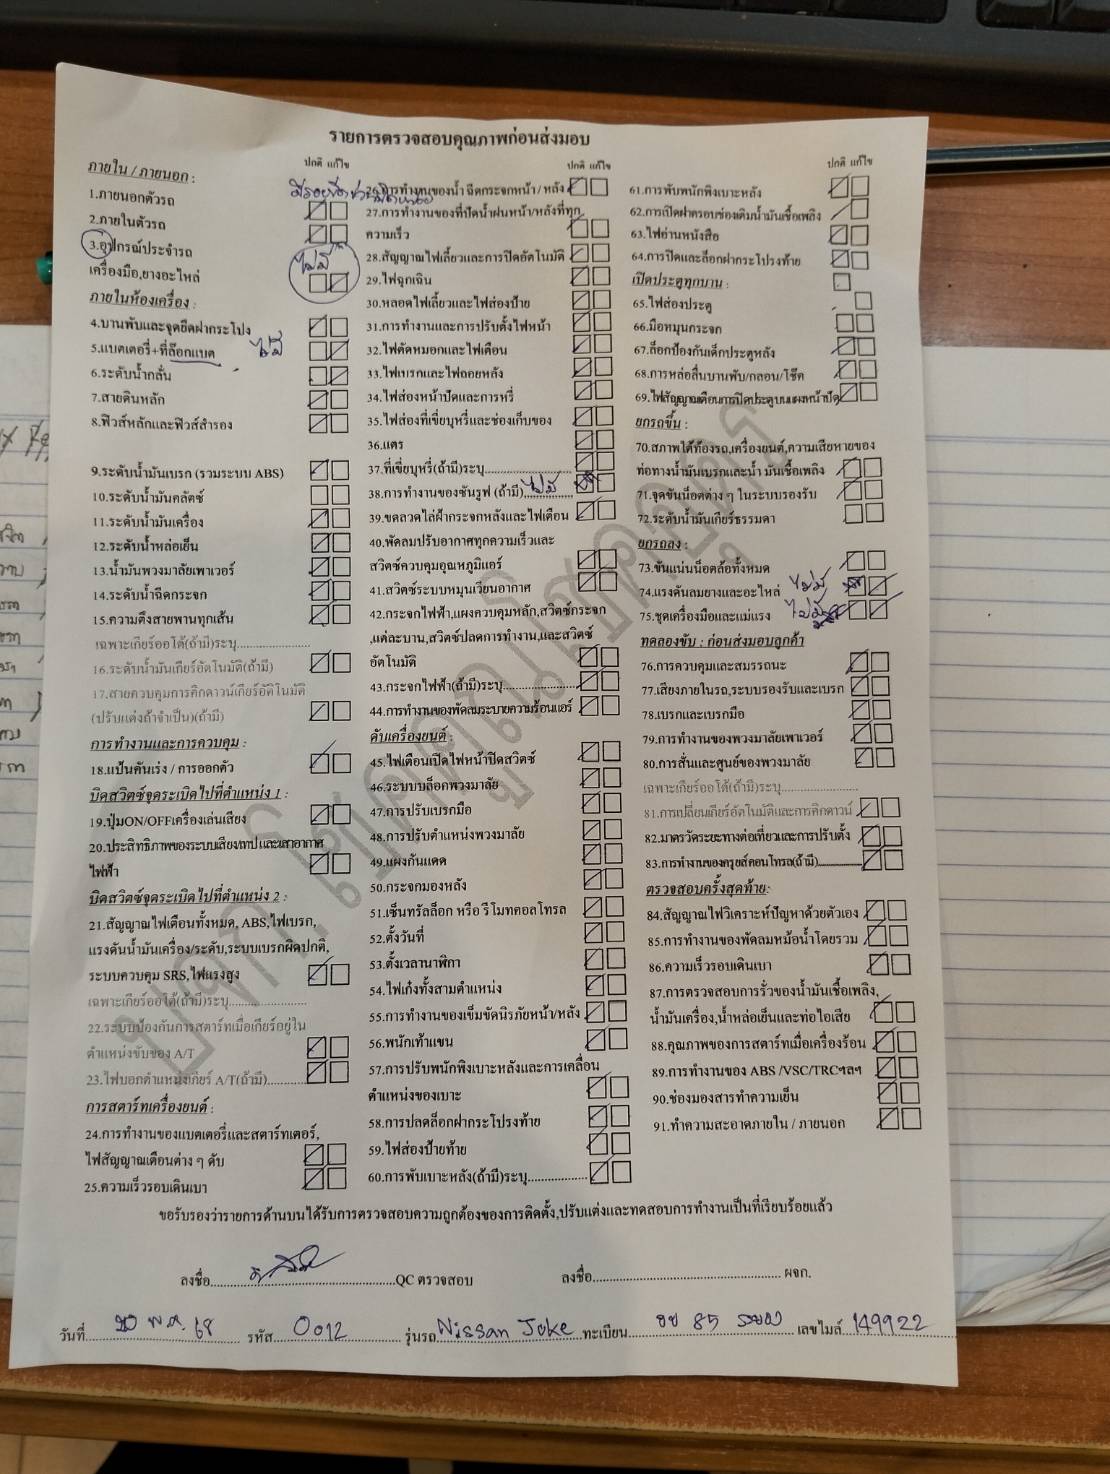 รายการตรวจสอบคุณภาพก่อนส่งมอบ
ปกติ แก้ไข
ภายใน / ภายนอก :
1.ภายนอกตัวรถ
2.ภายในตัวรถ
3.อุปกรณ์ประจำรถ
ไม่มี
เครื่องมือ,ยางอะไหล่
ภายในห้องเครื่อง :
4.บานพับและจุดยึดฝากระโปง
5.แบตเตอรี่+ที่ล๊อกแบต ไม่มี
6.ระดับน้ำกลั่น
7.สายดินหลัก
8.ฟิวส์หลักและฟิวส์สำรอง
9.ระดับน้ำมันเบรก (รวมระบบ ABS)
10.ระดับน้ำมันคลัตซ์
11.ระดับน้ำมันเครื่อง
12.ระดับน้ำหล่อเย็น
13.น้ำมันพวงมาลัยเพาเวอร์
14.ระดับน้ำฉีดกระจก
15.ความตึงสายพานทุกเส้น
เฉพาะเกียร์ออโต้(ถ้ามี)ระบุ
16.ระดับน้ำมันเกียร์อัตโนมัติ(ถ้ามี)
17.สายควบคุมการคิกดาวน์เกียร์อัตโนมัติ
(ปรับแต่งถ้าจำเป็น)(ถ้ามี)
การทำงานและการควบคุม :
18.แป้นคันเร่ง / การออกตัว
บิดสวิตซ์จุดระเบิดไปที่ตำแหน่ง 1 :
19.ปุ่มON/OFFเครื่องเล่นเสียง
20.ประสิทธิภาพของระบบเสียง/เทปและเสาอากาศ
ไฟฟ้า
บิดสวิตซ์จุดระเบิดไปที่ตำแหน่ง 2 :
21.สัญญาณไฟเตือนทั้งหมด, ABS,ไฟเบรก,
แรงดันน้ำมันเครื่อง/ระดับ,ระบบเบรกผิดปกติ,
ระบบควบคุม SRS,ไฟแรงสูง
เฉพาะเกียร์ออโต้(ถ้ามี)ระบุ
22.ระบบป้องกันการสตาร์ทเมื่อเกียร์อยู่ใน
ตำแหน่งขับของ A/T
23.ไฟบอกตำแหน่งเกียร์ A/T(ถ้ามี)
การสตาร์ทเครื่องยนต์ :
24.การทำงานของแบตเตอรี่และสตาร์ทเตอร์,
ไฟสัญญาณเตือนต่าง ๆ ดับ
25.ความเร็วรอบเดินเบา
ปกติ แก้ไข
26.การทำงานของน้ำ ฉีดกระจกหน้า/ หลัง
27.การทำงานของที่ปัดน้ำฝนหน้า/หลังที่ทุก
ความเร็ว
28.สัญญาณไฟเลี้ยวและการปิดอัตโนมัติ
29.ไฟฉุกเฉิน
30.หลอดไฟเลี้ยวและไฟส่องป้าย
31.การทำงานและการปรับตั้งไฟหน้า
32.ไฟตัดหมอกและไฟเตือน
33.ไฟเบรกและไฟถอยหลัง
34.ไฟส่องหน้าปัดและการหรี่
35.ไฟส่องที่เขี่ยบุหรี่และช่องเก็บของ
36.แตร
37.ที่เขี่ยบุหรี่(ถ้ามี)ระบุ
38.การทำงานของซันรูฟ (ถ้ามี) ไม่มี
39.ขดลวดไล่ฝ้ากระจกหลังและไฟเตือน
40.พัดลมปรับอากาศทุกความเร็วและ
สวิตซ์ควบคุมอุณหภูมิแอร์
41.สวิตซ์ระบบหมุนเวียนอากาศ
42.กระจกไฟฟ้า,แผงควบคุมหลัก,สวิตซ์กระจก
,แต่ละบาน,สวิตซ์ปลดการทำงาน,และสวิตซ์
อัตโนมัติ
43.กระจกไฟฟ้า(ถ้ามี)ระบุ
44.การทำงานของพัดลมระบายความร้อนแอร์
ดับเครื่องยนต์ :
45.ไฟเตือนเปิดไฟหน้าปิดสวิตซ์
46.ระบบบล็อกพวงมาลัย
47.การปรับเบรกมือ
48.การปรับตำแหน่งพวงมาลัย
49.แผงกันแดด
50.กระจกมองหลัง
51.เซ็นทรัลล็อก หรือ รีโมทคอลโทรล
52.ตั้งวันที่
53.ตั้งเวลานาฬิกา
54.ไฟเก๋งทั้งสามตำแหน่ง
55.การทำงานของเข็มขัดนิรภัยหน้า/หลัง
56.พนักเท้าแขน
57.การปรับพนักพิงเบาะหลังและการเคลื่อน
ตำแหน่งของเบาะ
58.การปลดล็อกฝากระโปรงท้าย
59.ไฟส่องป้ายท้าย
60.การพับเบาะหลัง(ถ้ามี)ระบุ
ปกติ แก้ไข
61.การพับพนักพิงเบาะหลัง
62.การเปิดฝาครอบช่องเติมน้ำมันเชื้อเพลิง
63.ไฟอ่านหนังสือ
64.การปิดและล็อกฝากระโปรงท้าย
เปิดประตูทุกบาน :
65.ไฟส่องประตู
66.มือหมุนกระจก
67.ล็อกป้องกันเด็กประตูหลัง
68.การหล่อลื่นบานพับ/กลอน/โช๊ค
69.ไฟสัญญาณเตือนการปิดประตูบนแผงหน้าปัด
ยกรถขึ้น :
70.สภาพใต้ท้องรถ,เครื่องยนต์,ความเสียหายของ
ท่อทางน้ำมันเบรกและน้ำ มันเชื้อเพลิง
71.จุดขันน็อตต่าง ๆ ในระบบรองรับ
72.ระดับน้ำมันเกียร์ธรรมดา
ยกรถลง :
73.ขันแน่นน็อตล้อทั้งหมด
74.แรงดันลมยางและอะไหล่ ไม่มี
75.ชุดเครื่องมือและแม่แรง ไม่มี
ทดลองขับ : ก่อนส่งมอบลูกค้า
76.การควบคุมและสมรรถนะ
77.เสียงภายในรถ,ระบบรองรับและเบรก
78.เบรกและเบรกมือ
79.การทำงานของพวงมาลัยเพาเวอร์
80.การสั่นและศูนย์ของพวงมาลัย
เฉพาะเกียร์ออโต้(ถ้ามี)ระบุ
81.การเปลี่ยนเกียร์อัตโนมัติและการคิกดาวน์
82.มาตรวัดระยะทางต่อเที่ยวและการปรับตั้ง
83.การทำงานของครูยส์คอนโทรล(ถ้ามี)
ตรวจสอบครั้งสุดท้าย:
84.สัญญาณไฟวิเคราะห์ปัญหาด้วยตัวเอง
85.การทำงานของพัดลมหม้อน้ำโดยรวม
86.ความเร็วรอบเดินเบา
87.การตรวจสอบการรั่วของน้ำมันเชื้อเพลิง,
น้ำมันเครื่อง,น้ำหล่อเย็นและท่อไอเสีย
88.คุณภาพของการสตาร์ทเมื่อเครื่องร้อน
89.การทำงานของ ABS /VSC/TRCฯลฯ
90.ช่องมองสารทำความเย็น
91.ทำความสะอาดภายใน / ภายนอก
ขอรับรองว่ารายการด้านบนได้รับการตรวจสอบความถูกต้องของการติดตั้ง,ปรับแต่งและทดสอบการทำงานเป็นที่เรียบร้อยแล้ว
ลงชื่อ QC ตรวจสอบ ลงชื่อ ผจก.
วันที่ 20 พ.ค. 68 รหัส 0012 รุ่นรถ Nissan Juke ทะเบียน 85 ระยอง เลขไมล์ 149922